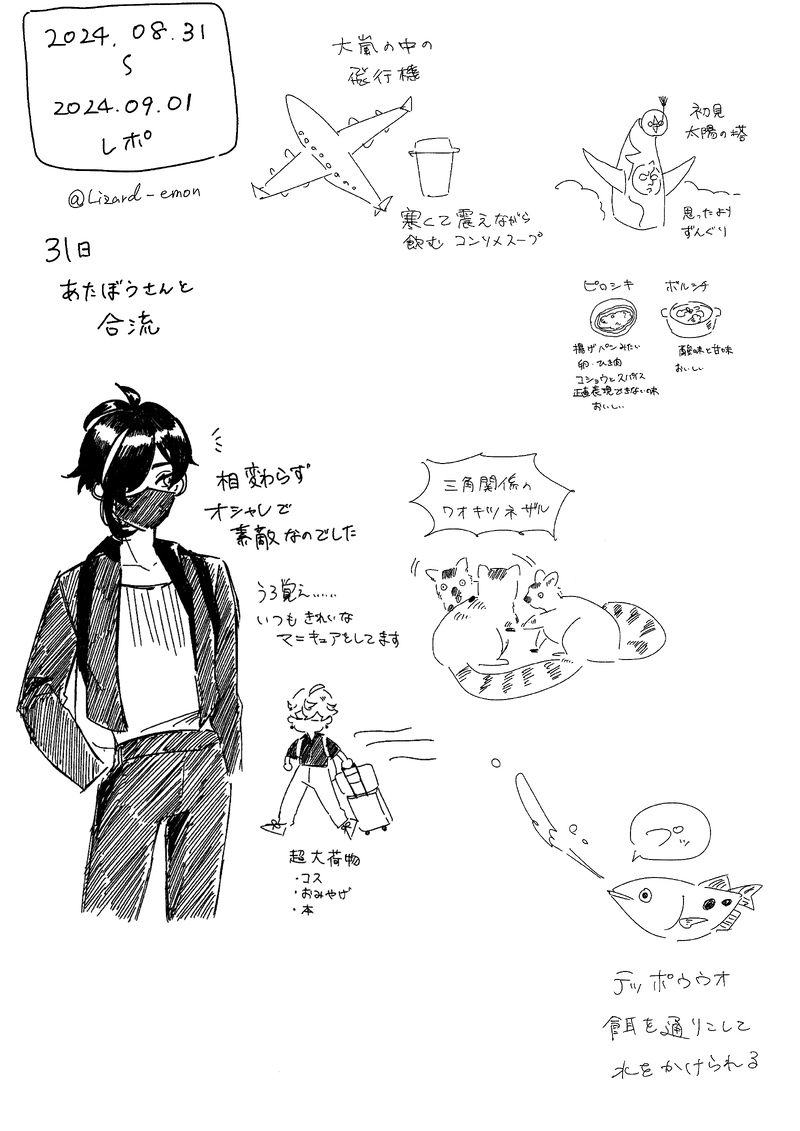 2024.08.31
S
2024.09.01
レポ
@Lizard-emon
大嵐の中の
飛行機
寒くて震えながら
飲む コンソメスープ
初見
太陽の塔
思ったより
ずんぐり
31日
あたぼうさんと
合流
ピロシキ
揚げパンみたい
卵・ひき肉
コショウとスパイス
正直表現できない味
おいしい
ボルシチ
酸味と甘味
おいしい
相変わらず
オシャレで
素敵なのでした
うろ覚え……
いつもきれいな
マニキュアをしてます
三角関係の
ワオキツネザル
超大荷物
・コス
・おみやげ
・本
プッ
テッポウウオ
餌を通りこして
水をかけられる